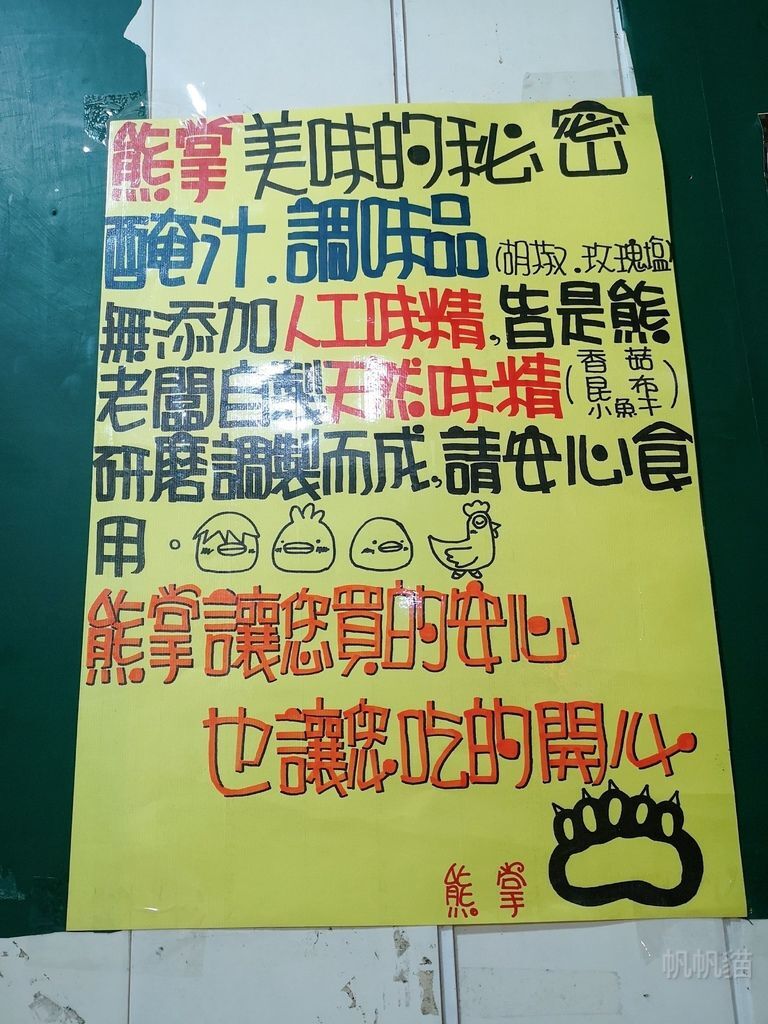 熊掌美味的秘密
醃汁.調味品(胡椒.玫瑰塩)
無添加人工味精,皆是熊
老闆自製天然味精(香菇 昆布 小魚干)
研磨調製而成,請安心食
用.
熊掌讓您買的安心
也讓您吃的開心
熊掌
帆帆貓